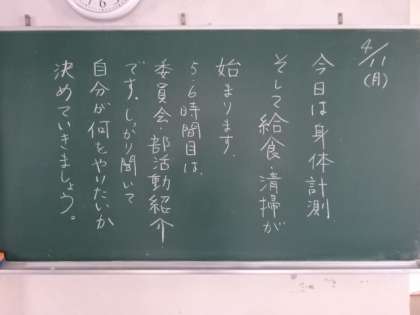 4/11(月)
今日は身体計測
そして給食・清掃が
始まります。
5 6時間目は、
委員会・部活動紹介
です。しっかり聞いて
自分が何をやりたいか
決めていきましょう。